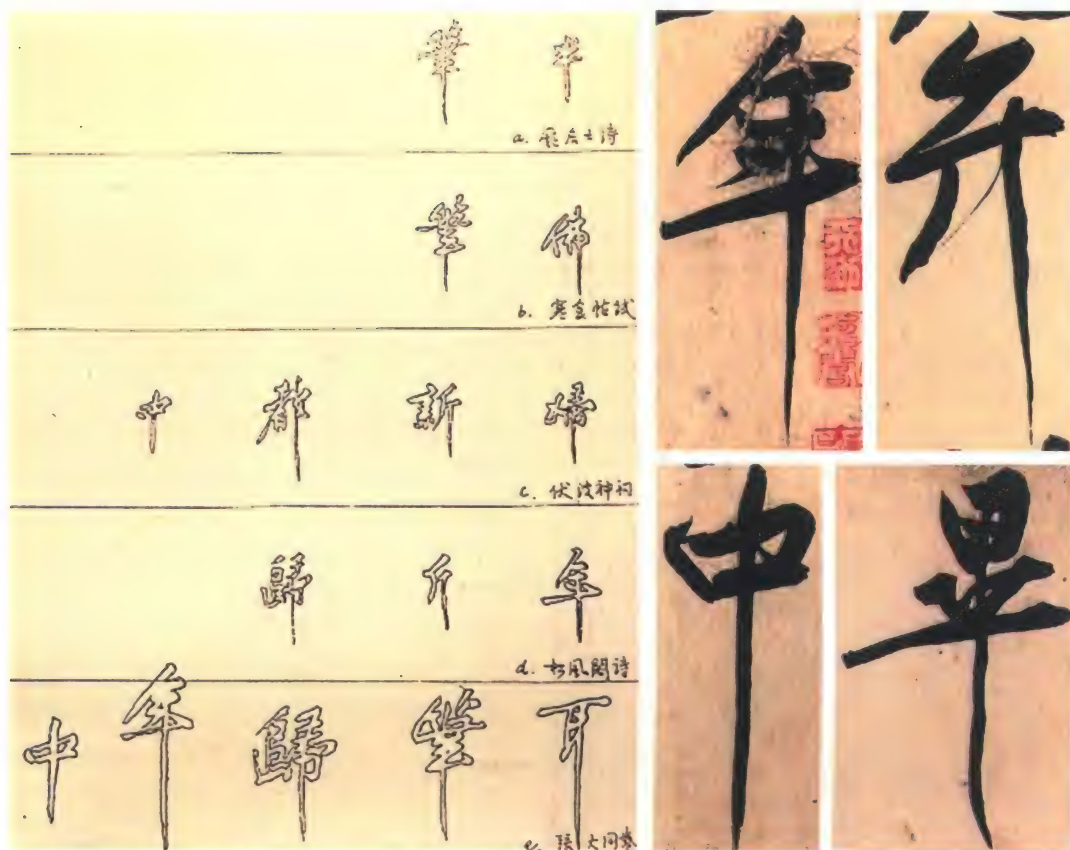 筆 半
a. 龐居士詩
筆 佛
b. 寒食帖跋
中 都 新 婦
c. 伏波神祠
歸 斤 年
d. 松風閣詩
中 年 歸 筆 耳
e. 張大同卷
年 斤
中 畢